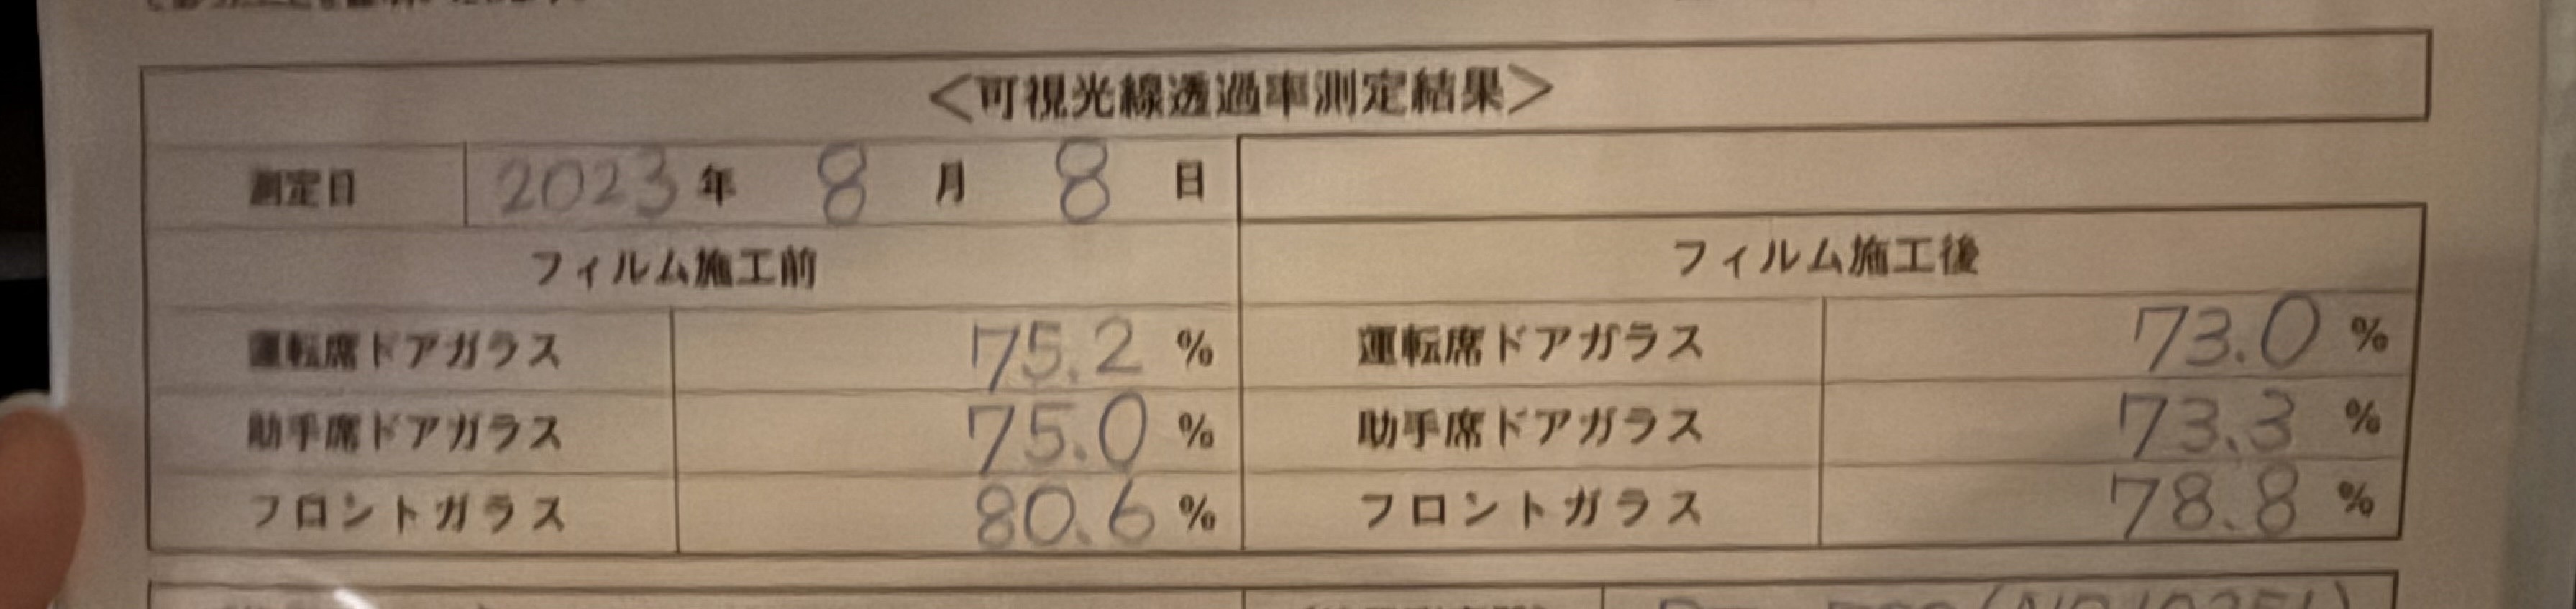 <可視光線透過率測定結果>
測定日 2023 年 8 月 8 日
フィルム施工前 フィルム施工後
運転席ドアガラス 75.2 % 運転席ドアガラス 73.0 %
助手席ドアガラス 75.0 % 助手席ドアガラス 73.3 %
フロントガラス 80.6 % フロントガラス 78.8 %